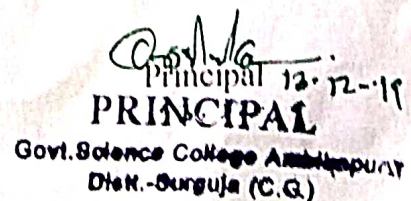 Principal 12.12-19
PRINCIPAL
Govt.Science College Ambikapur
Distt.-Surguja (C.G.)